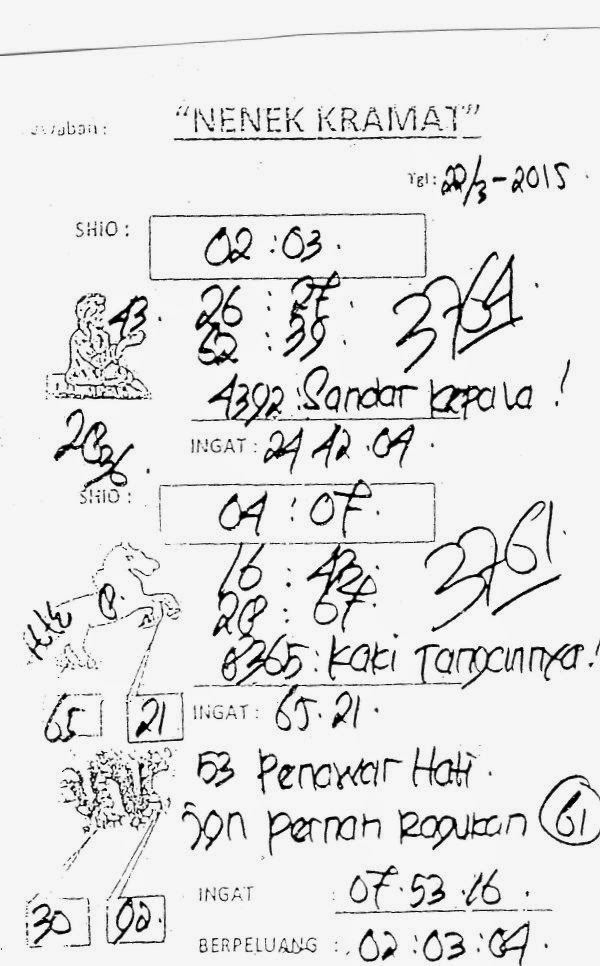 "NENEK KRAMAT"
Tgl: 22/3-2015
SHIO: 02:03.
43. 26 : 27
62 : 39.
3764.
4392: Sandar kepala!
INGAT: 24 42.04.
2836.
SHIO: 04:07.
16 : 43
28 : 67.
3761.
8365: Kaki Tangannya!
65 21 INGAT: 65.21.
53 Penawar Hati.
Jgn pernah Ragukan 61
INGAT : 07.53.16.
30 92.
BERPELUANG : 02:03:04.